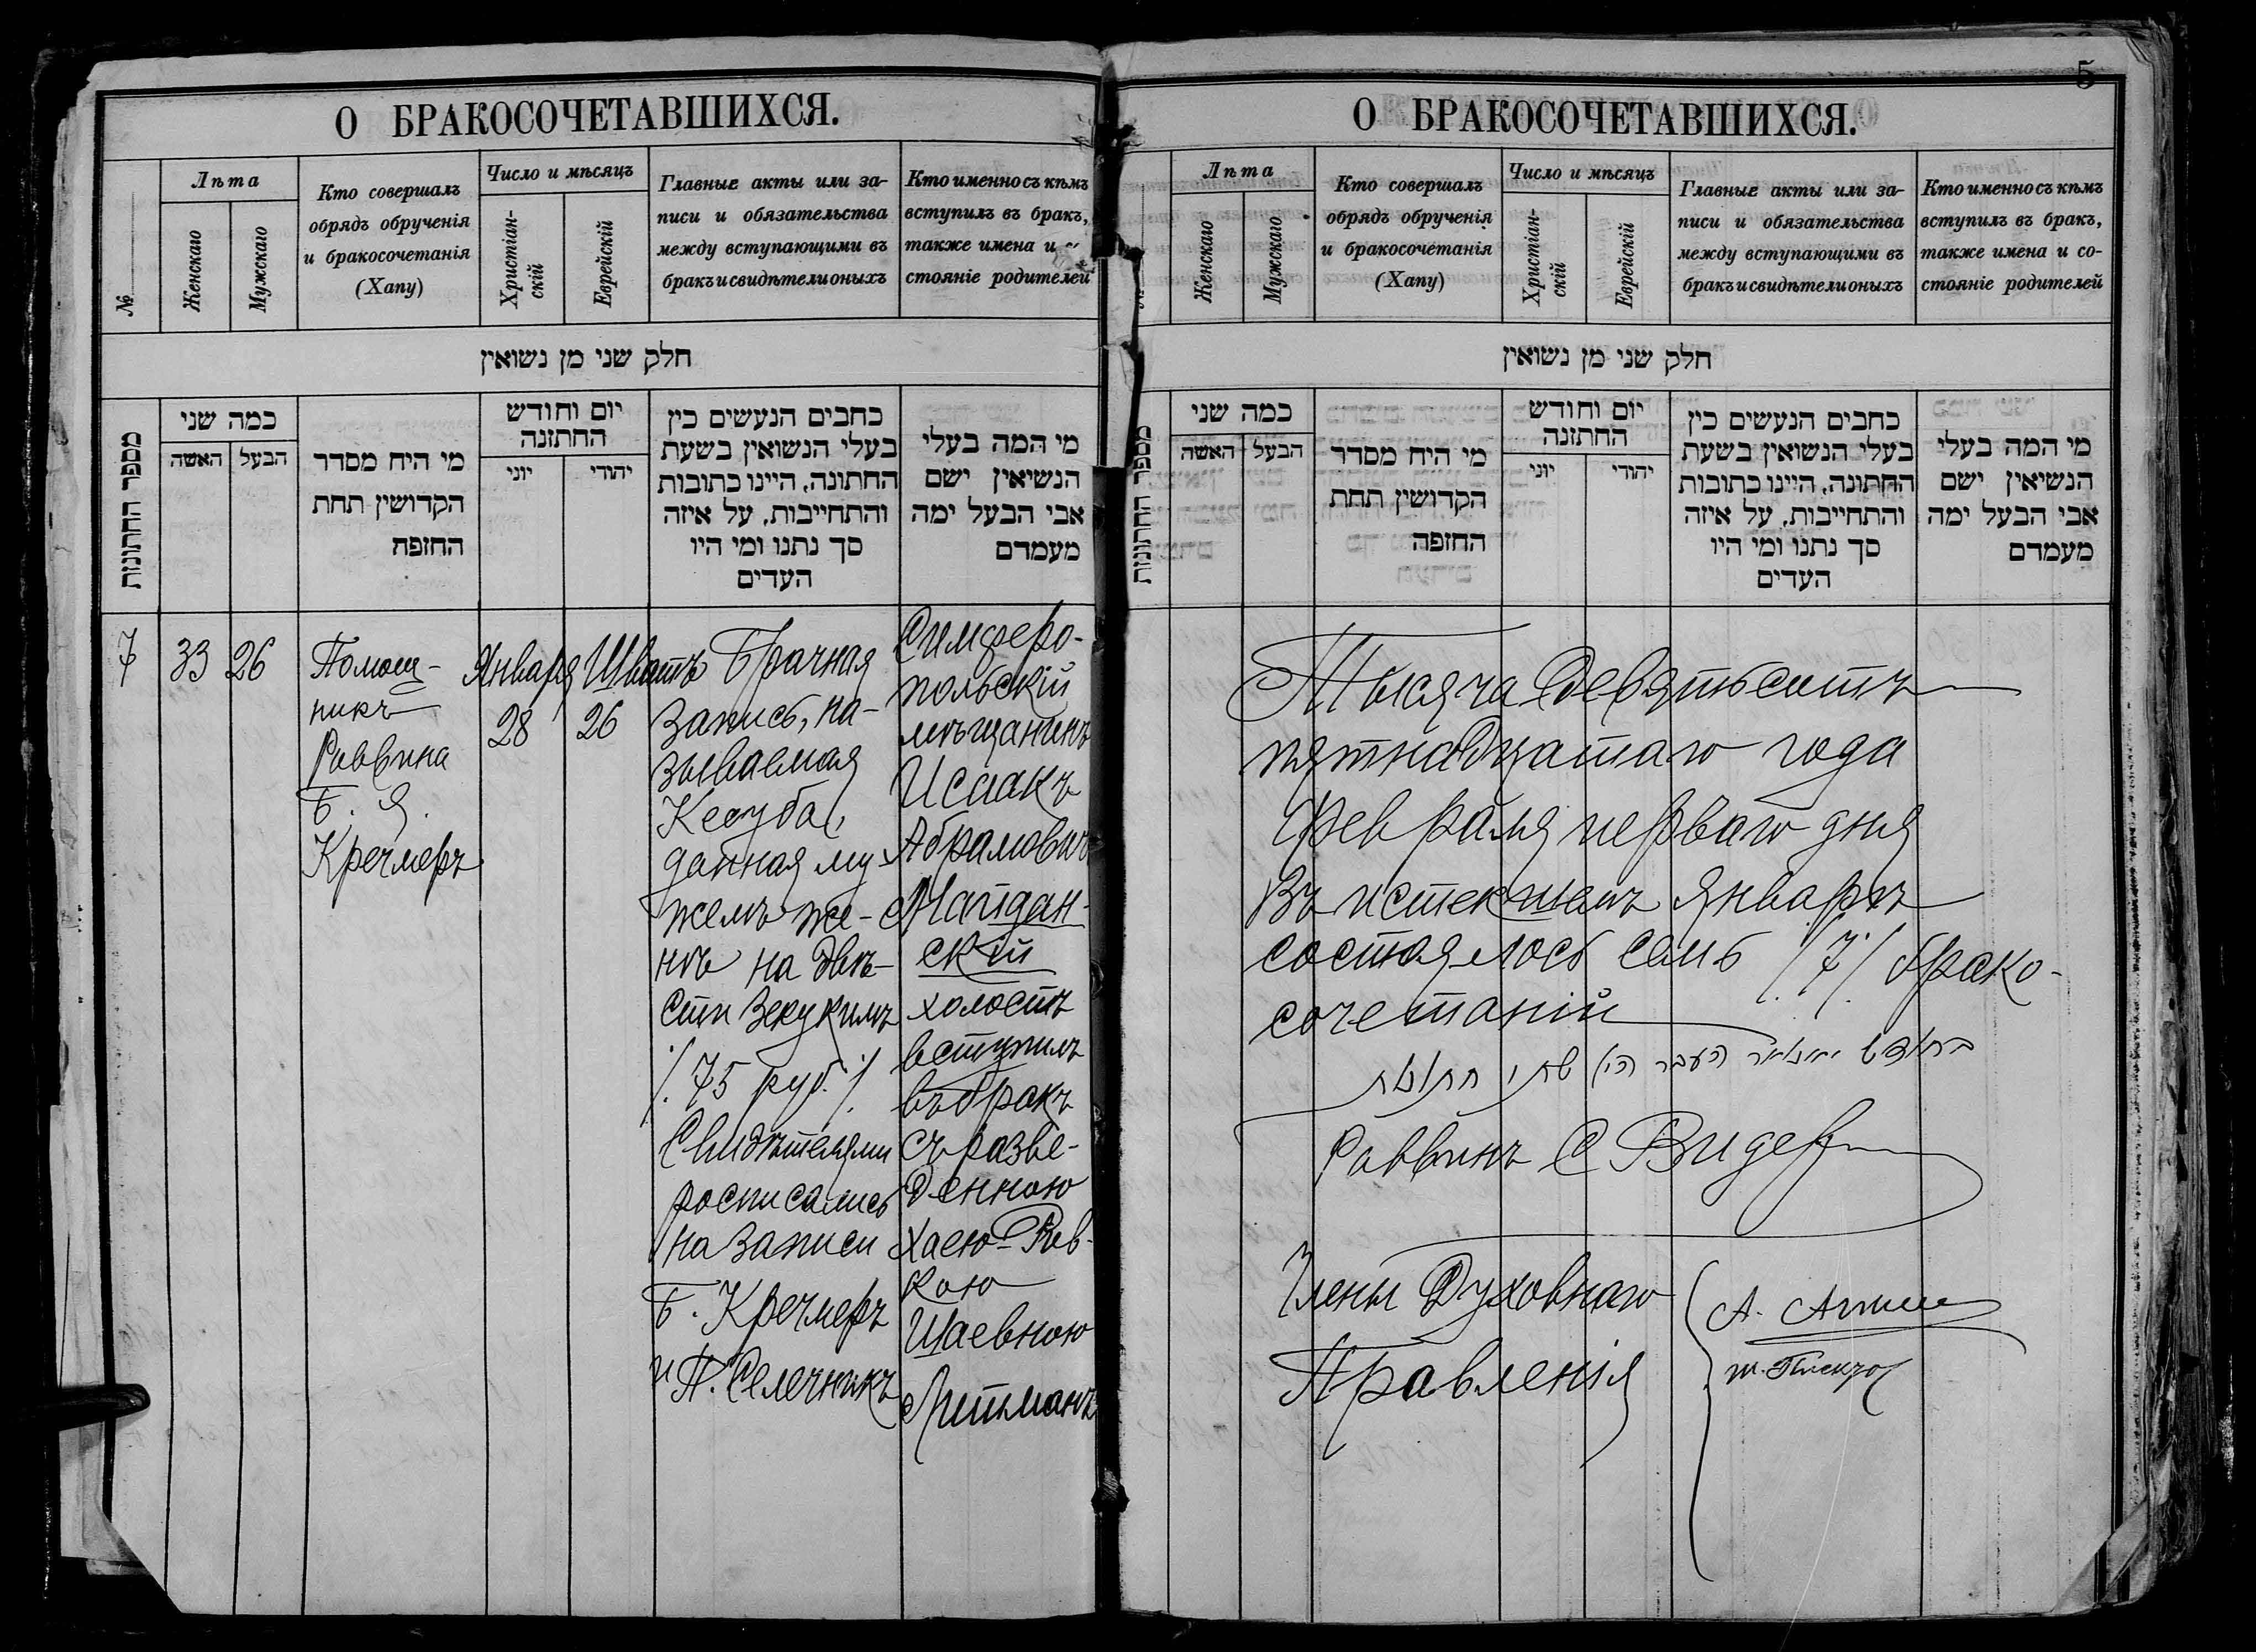 О БРАКОСОЧЕТАВШИХСЯ.
№
Лѣта
Женскаго
Мужскаго
Кто совершалъ
обрядъ обрученія
и бракосочетанія
(Хапу)
Число и мѣсяцъ
Христіан-
скій
Еврейскій
Главные акты или за-
писи и обязательства
между вступающими въ
бракъ и свидѣтели оныхъ
Кто именно съ кѣмъ
вступилъ въ бракъ,
также имена и
стояніе родителей
חלק שני מן נשואין
מספר החתונות
כמה שני
האשה
הבעל
מי היח מסדר
הקדושין תחת
החופה
יום וחודש
החתונה
יוני
יהודי
כתבים הנעשים בין
בעלי הנשואין בשעת
החתונה, היינו כתובות
והתחייבות, על איזה
סך נתנו ומי היו
העדים
מי המה בעלי
הנשיאין ישם
אבי הבעל ימה
מעמדם
7
33
26
Помощ-
никъ
Раввина
Б. Я.
Кречмеръ
Января
28
Шватъ
26
Брачная
запись, на-
зываемая
Кесуба,
данная му-
жемъ же-
нѣ на двѣ-
сти Зекукимъ
/.75 руб./.
Свидѣтелями
росписались
на записи
Б. Кречмеръ
и П. Селечникъ
Симферо-
польскій
мѣщанинъ
Исаакъ
Абрамовичъ
Майдан-
скій
холостъ
вступилъ
въ бракъ
съ разве-
денною
Хаею-Рив-
кою
Шаевною
Литманъ
5
О БРАКОСОЧЕТАВШИХСЯ.
Лѣта
Женскаго
Мужскаго
Кто совершалъ
обрядъ обрученія
и бракосочетанія
(Хапу)
Число и мѣсяцъ
Христіан-
скій
Еврейскій
Главные акты или за-
писи и обязательства
между вступающими въ
бракъ и свидѣтели оныхъ
Кто именно съ кѣмъ
вступилъ въ бракъ,
также имена и со-
стояніе родителей
חלק שני מן נשואין
מספר החתונות
כמה שני
האשה
הבעל
מי היח מסדר
הקדושין תחת
החופה
יום וחודש
החתונה
יוני
יהודי
כתבים הנעשים בין
בעלי הנשואין בשעת
החתונה, היינו כתובות
והתחייבות, על איזה
סך נתנו ומי היו
העדים
מי המה בעלי
הנשיאין ישם
אבי הבעל ימה
מעמדם
Тысяча девятьсотъ
пятнадцатаго года
Февраля перваго дня
Въ истекшемъ Январѣ
состоялось семь /.7/. брако-
сочетаній
בחודש יאנואר העבר היו חתונות
Раввинъ С Видер
Члены Духовнаго
Правленія
А.